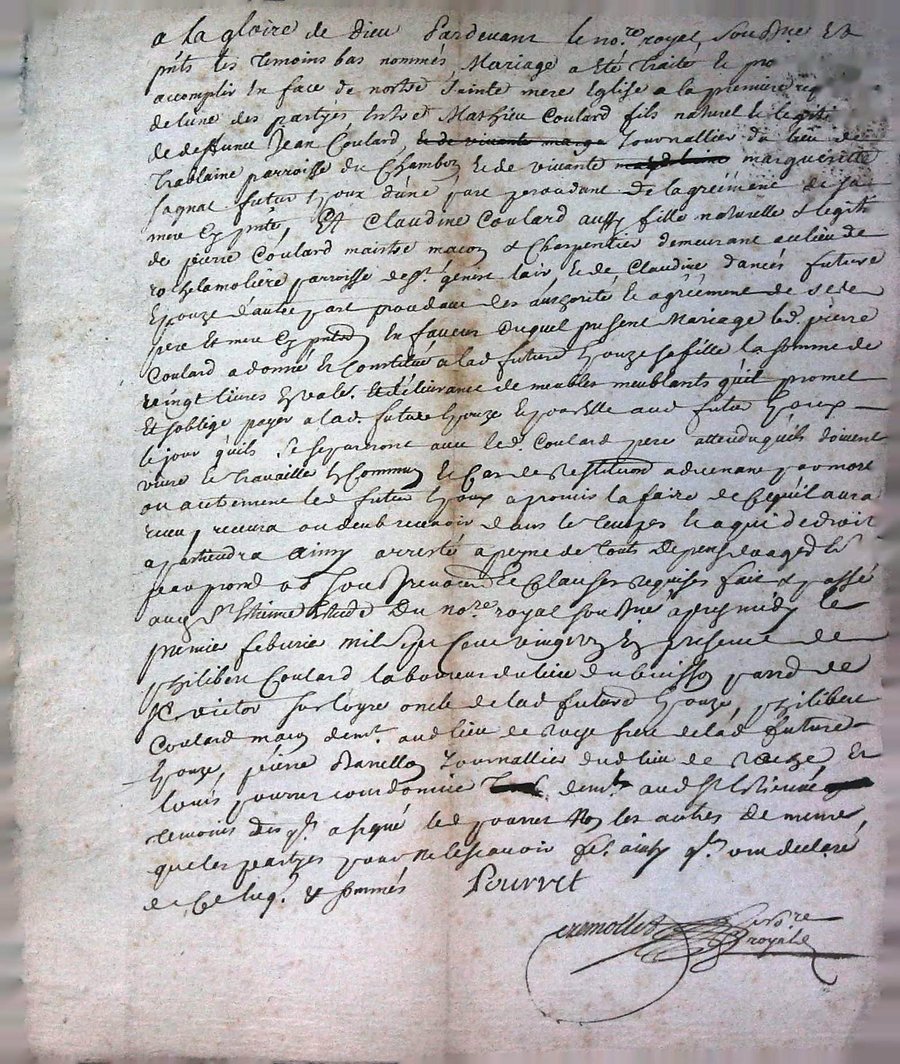 a la gloire de Dieu Pardevant le no.re royal, soubs.ne Et
pnts les temoins bas nommés Mariage a eté traité le pro
accomplir En face de nostre Sainte mere Eglise a la premiere req
de lune des partyes Entre Mathieu Coulard fils naturel & legiti
de deffunt Jean Coulard, Journallier du lieu de
trablaine parroisse du Chambon & de vivante margueritte
sagnat futur Epoux d'une part procedant de lagreement de sa
mere Cy pnte, Et Claudine Coulard aussy fille naturelle & legiti
de pierre Coulard maitre macon & Charpentier demeurant au lieu de
rochelamoliere parroisse de st. genest lair & de Claudine dancés future
Epouze d'autre part procedant des authorité & agreement de sesd
pere Et mere Cy pnts En faveur duquel present Mariage led. pierre
Coulard a donné & Constitué a lad future Epouze sa fille la somme de
vingt livres Et delivrance de meubles meublants qu'il promet
Et soblige payer a lad. future Epouze & pour Elle aud futur Epoux
le jour quils se separeront avec led. Coulard pere attendu quils doivent
vivre & travaille En Commun & Cas de restitution advenant par mort
ou autrement led. futur Epoux a promis la faire de Ce quil aura
receu, recevra ou deub recevoir dans le temps & a qui de droit
apartiendra Ainsy arresté a peyne de touts depens domages &
soubs renon & Clauses requises fait & passé
aud St Etienne Etude du no.re royal soubs.ne apres midy le
premier feburier mil sept Cent vingt En presence de
philibert Coulard laboureur du lieu du buisson parr. de
St victor sur loyre oncle de lad future Epouze, philibert
Coulard macon dem.t aud lieu de roche frere de lad future
Epouze, pierre Journallier dud lieu de roche Et
louis pourret cordonnier dem.t aud St Etienne
temoins desq.ls a signé led pourret Non les autres de meme
que les partyes pour ne le scavoir fe. ainsy q.ls ont declaré
de Ce Enq. & sommés Pourret
no.re
royale